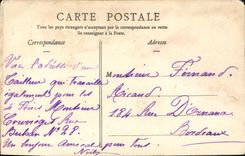 CARTE POSTALE
Tous les pays étrangers n'acceptent pas la correspondance au recto
Se renseigner à la Poste.
Correspondance
Adresse
Tailleur qui travaille
également pour les
4 fois Monsieur
Courrégut Rue
Buhan Nº 22.
Un bonjour amical pour tous.
Monsieur Fernand
Ricaud
184 Rue D'Ornano
Bordeaux